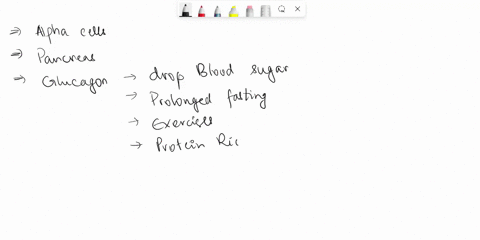 ⇒ Alpha cells
⇒ Pancreas
⇒ Glucagon → drop Blood sugar
→ Prolonged fasting
→ Exercises
→ Protein Ric